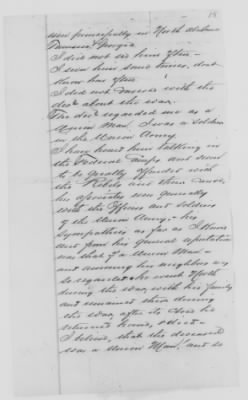 were principally in North Alabama
Tennessee & Georgia
I did not see him often -
I seen him some times, dont
know how often
I did not converse with the
decd about the war.
The decd regarded me as a
Union Man, I was a soldier
in the Union Army
I have heard him talking in
the Federal Camps and seem
to be greatly offended with
the Rebels and their cause,
his associates were generally
with the Officers and soldiers
of the Union Army - his
Sympathies as far as I know
and from his general reputation
was that of a Union Man -
and among his neighbors was
so regarded. He went North
during the War, with his family
and remained there during
the War, after its close he
returned home,
I believe, that the deceased
was a Union Man, and so